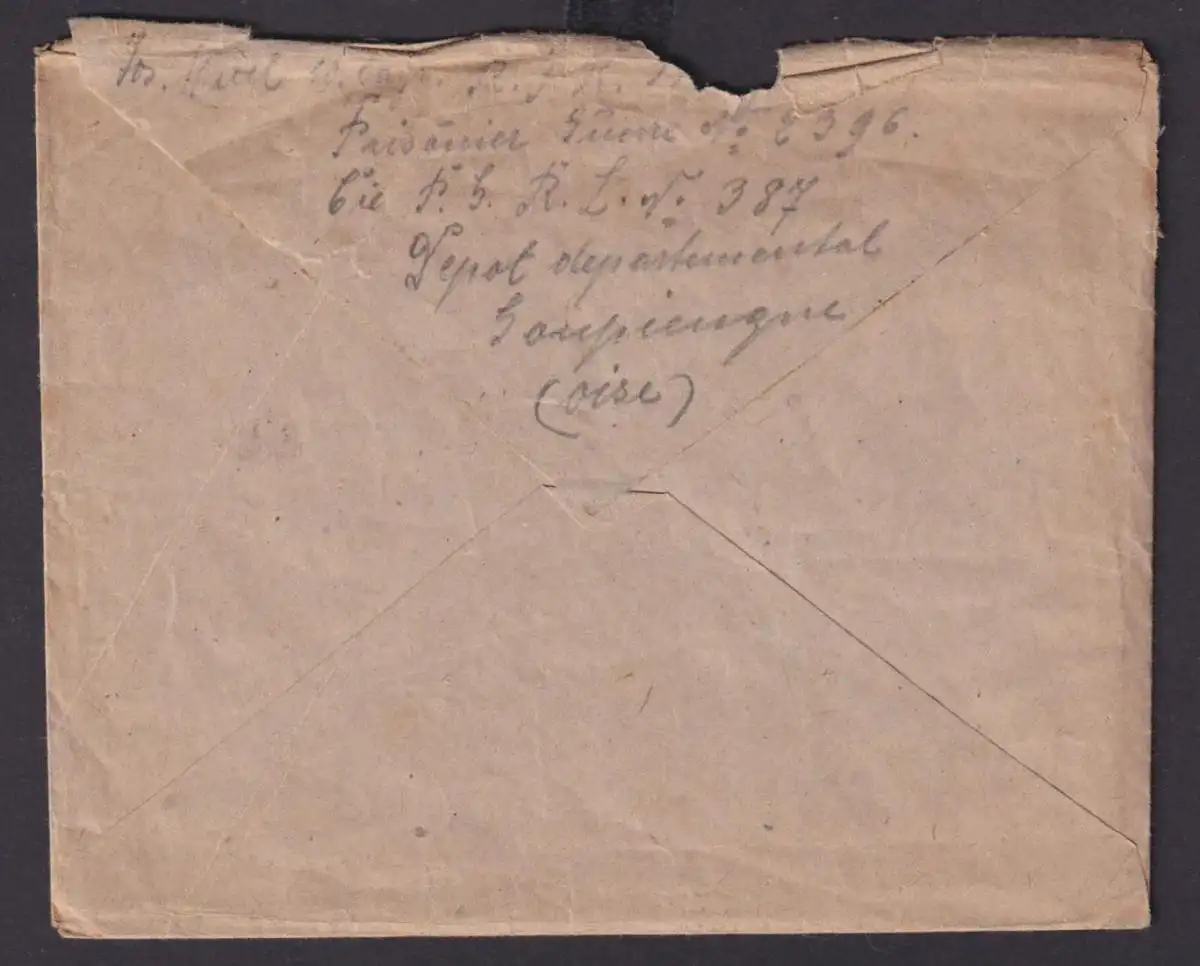 Jos. 10. R. J. R.
Prisonier Guerre No 2396.
Cie P. G. R. L. No. 387
Depot departemental
Gonpiengne
(oise)